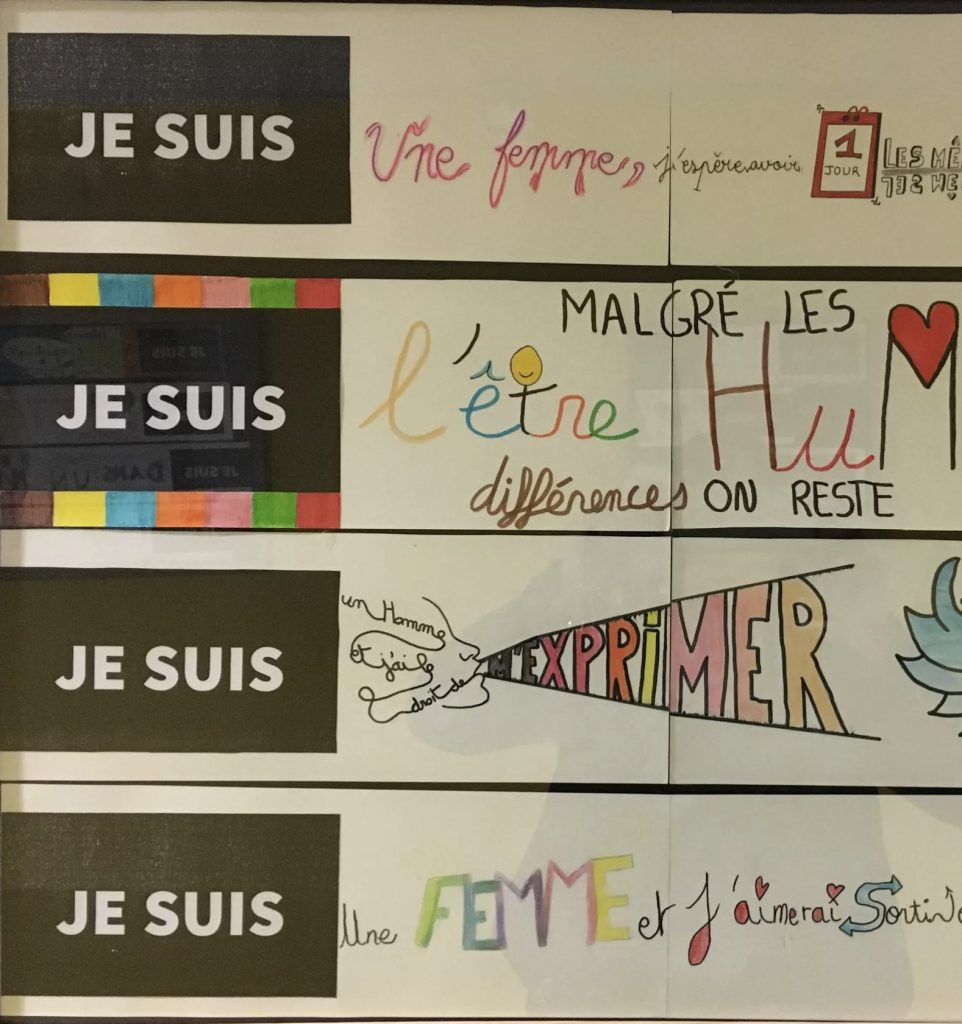 JE SUIS Une femme, j'espère avoir 1 JOUR LES MÊ
JE SUIS MALGRÉ LES
l'être HuM
différences ON RESTE
JE SUIS un Homme et j'ai le droit de M'EXPRiMER
JE SUIS Une FEMME et J'aimerai Sortir